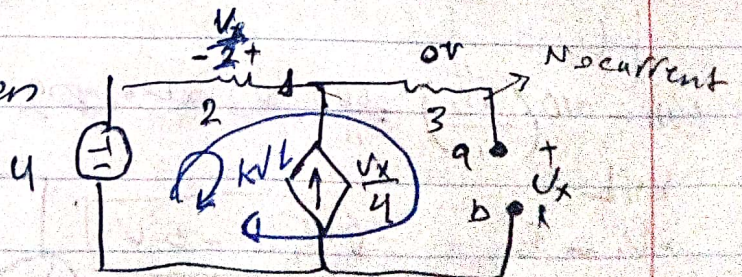 Vx/2
- +
0V
No current
2
3
4
KVL
Vx/4
a
+
Vx
b